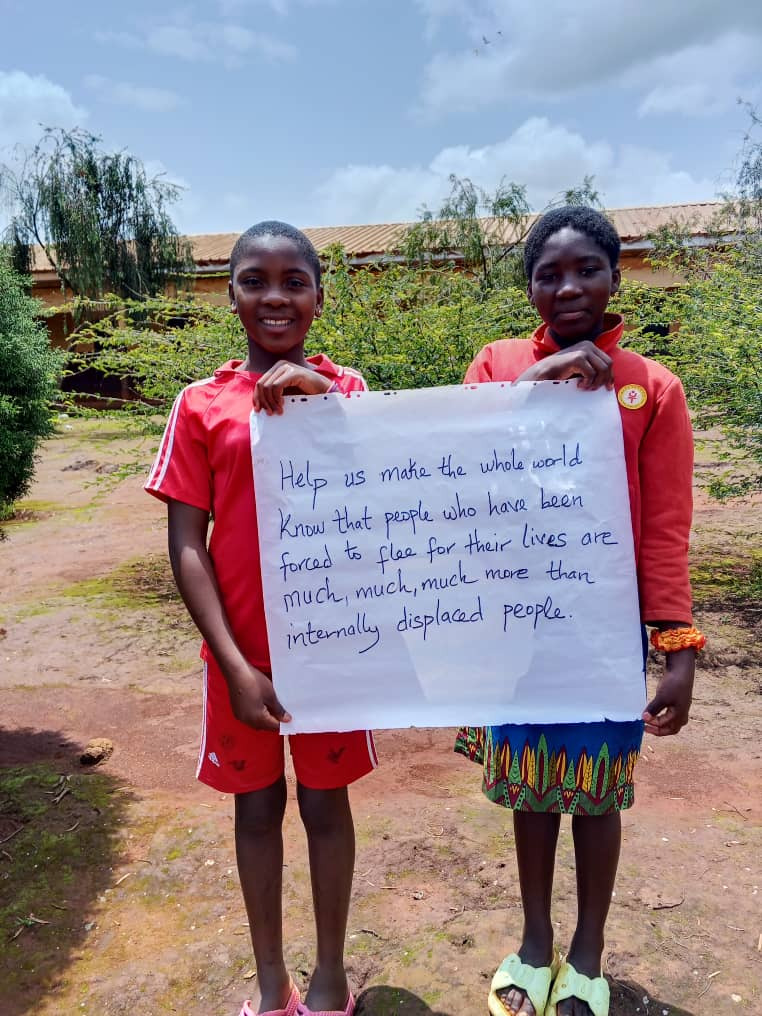 Help us make the whole world
Know that people who have been
forced to flee for their lives are
much, much, much more than
internally displaced people.